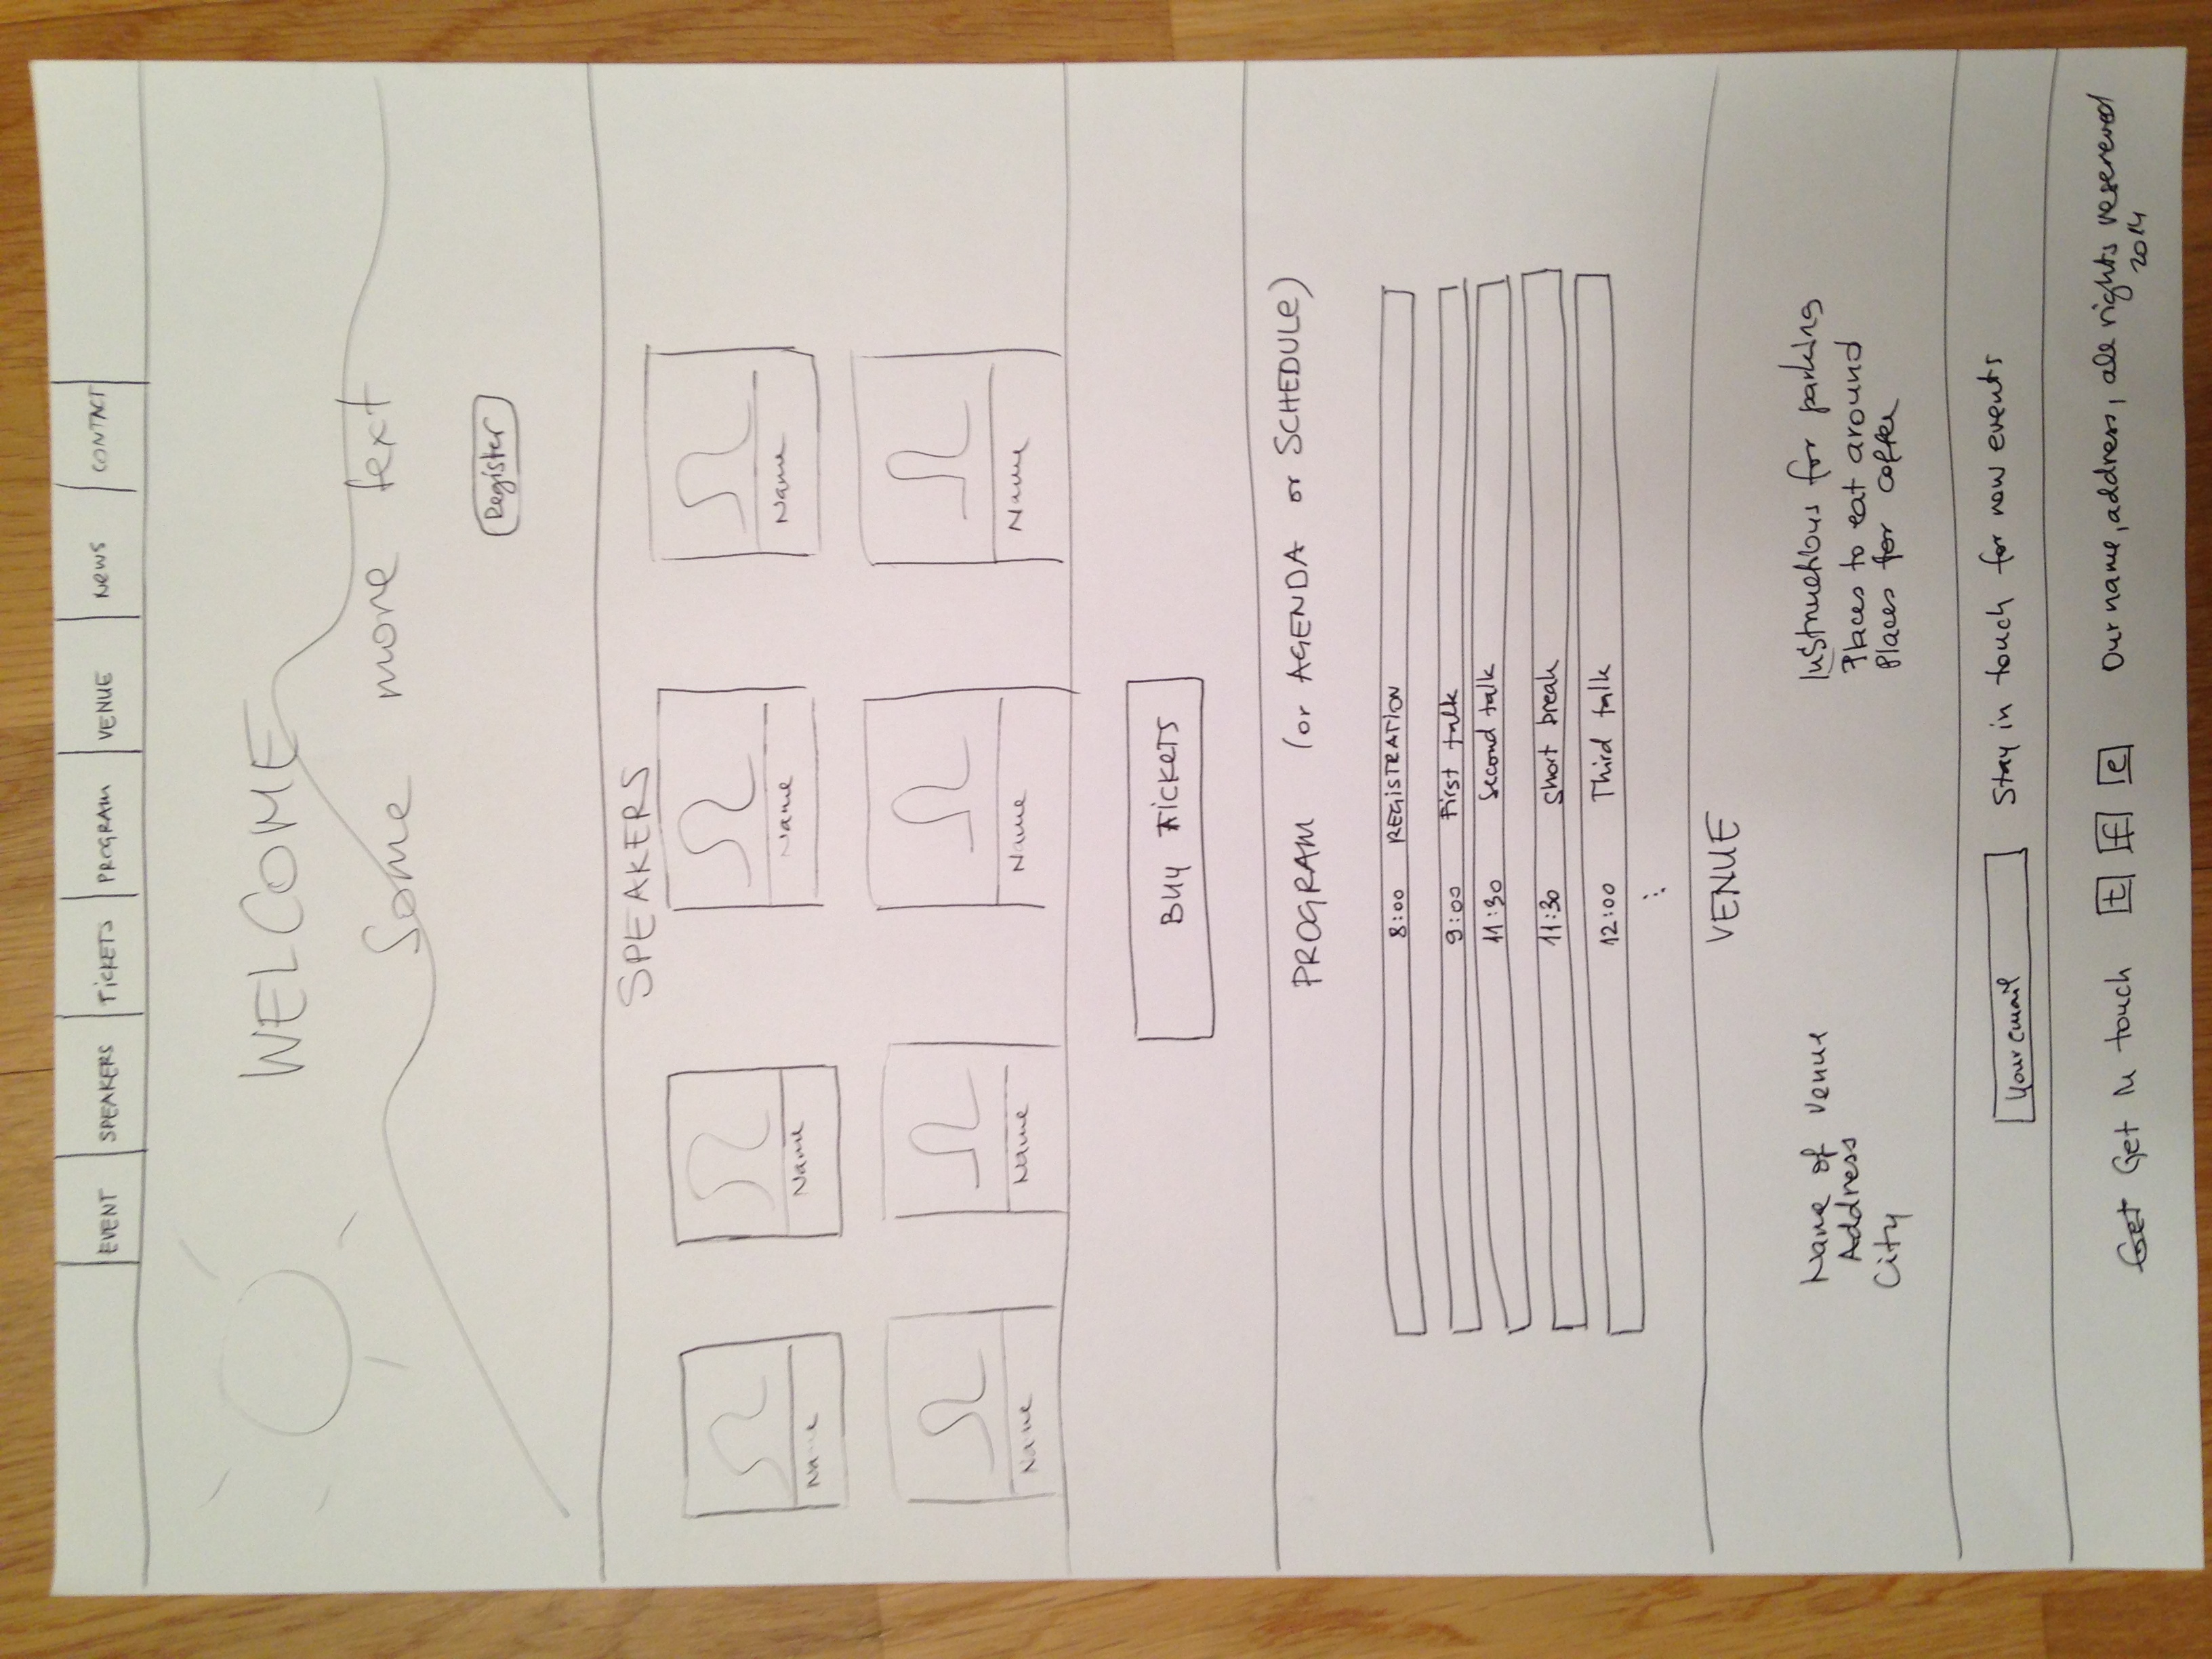 EVENT SPEAKERS TICKETS PROGRAM VENUE NEWS CONTACT
WELCOME
Some more text
Register
SPEAKERS
Name Name Name Name
Name Name Name Name
BUY TICKETS
PROGRAM (or AGENDA or SCHEDULE)
8:00 REGISTRATION
9:00 First talk
11:30 Second talk
11:30 Short break
12:00 Third talk
⋮
VENUE
Name of venue
Address
City
Instructions for parking
Places to eat around
Places for coffee
Your email Stay in touch for new events
Get Get in touch t f e Our name, address, all rights resereved
2014